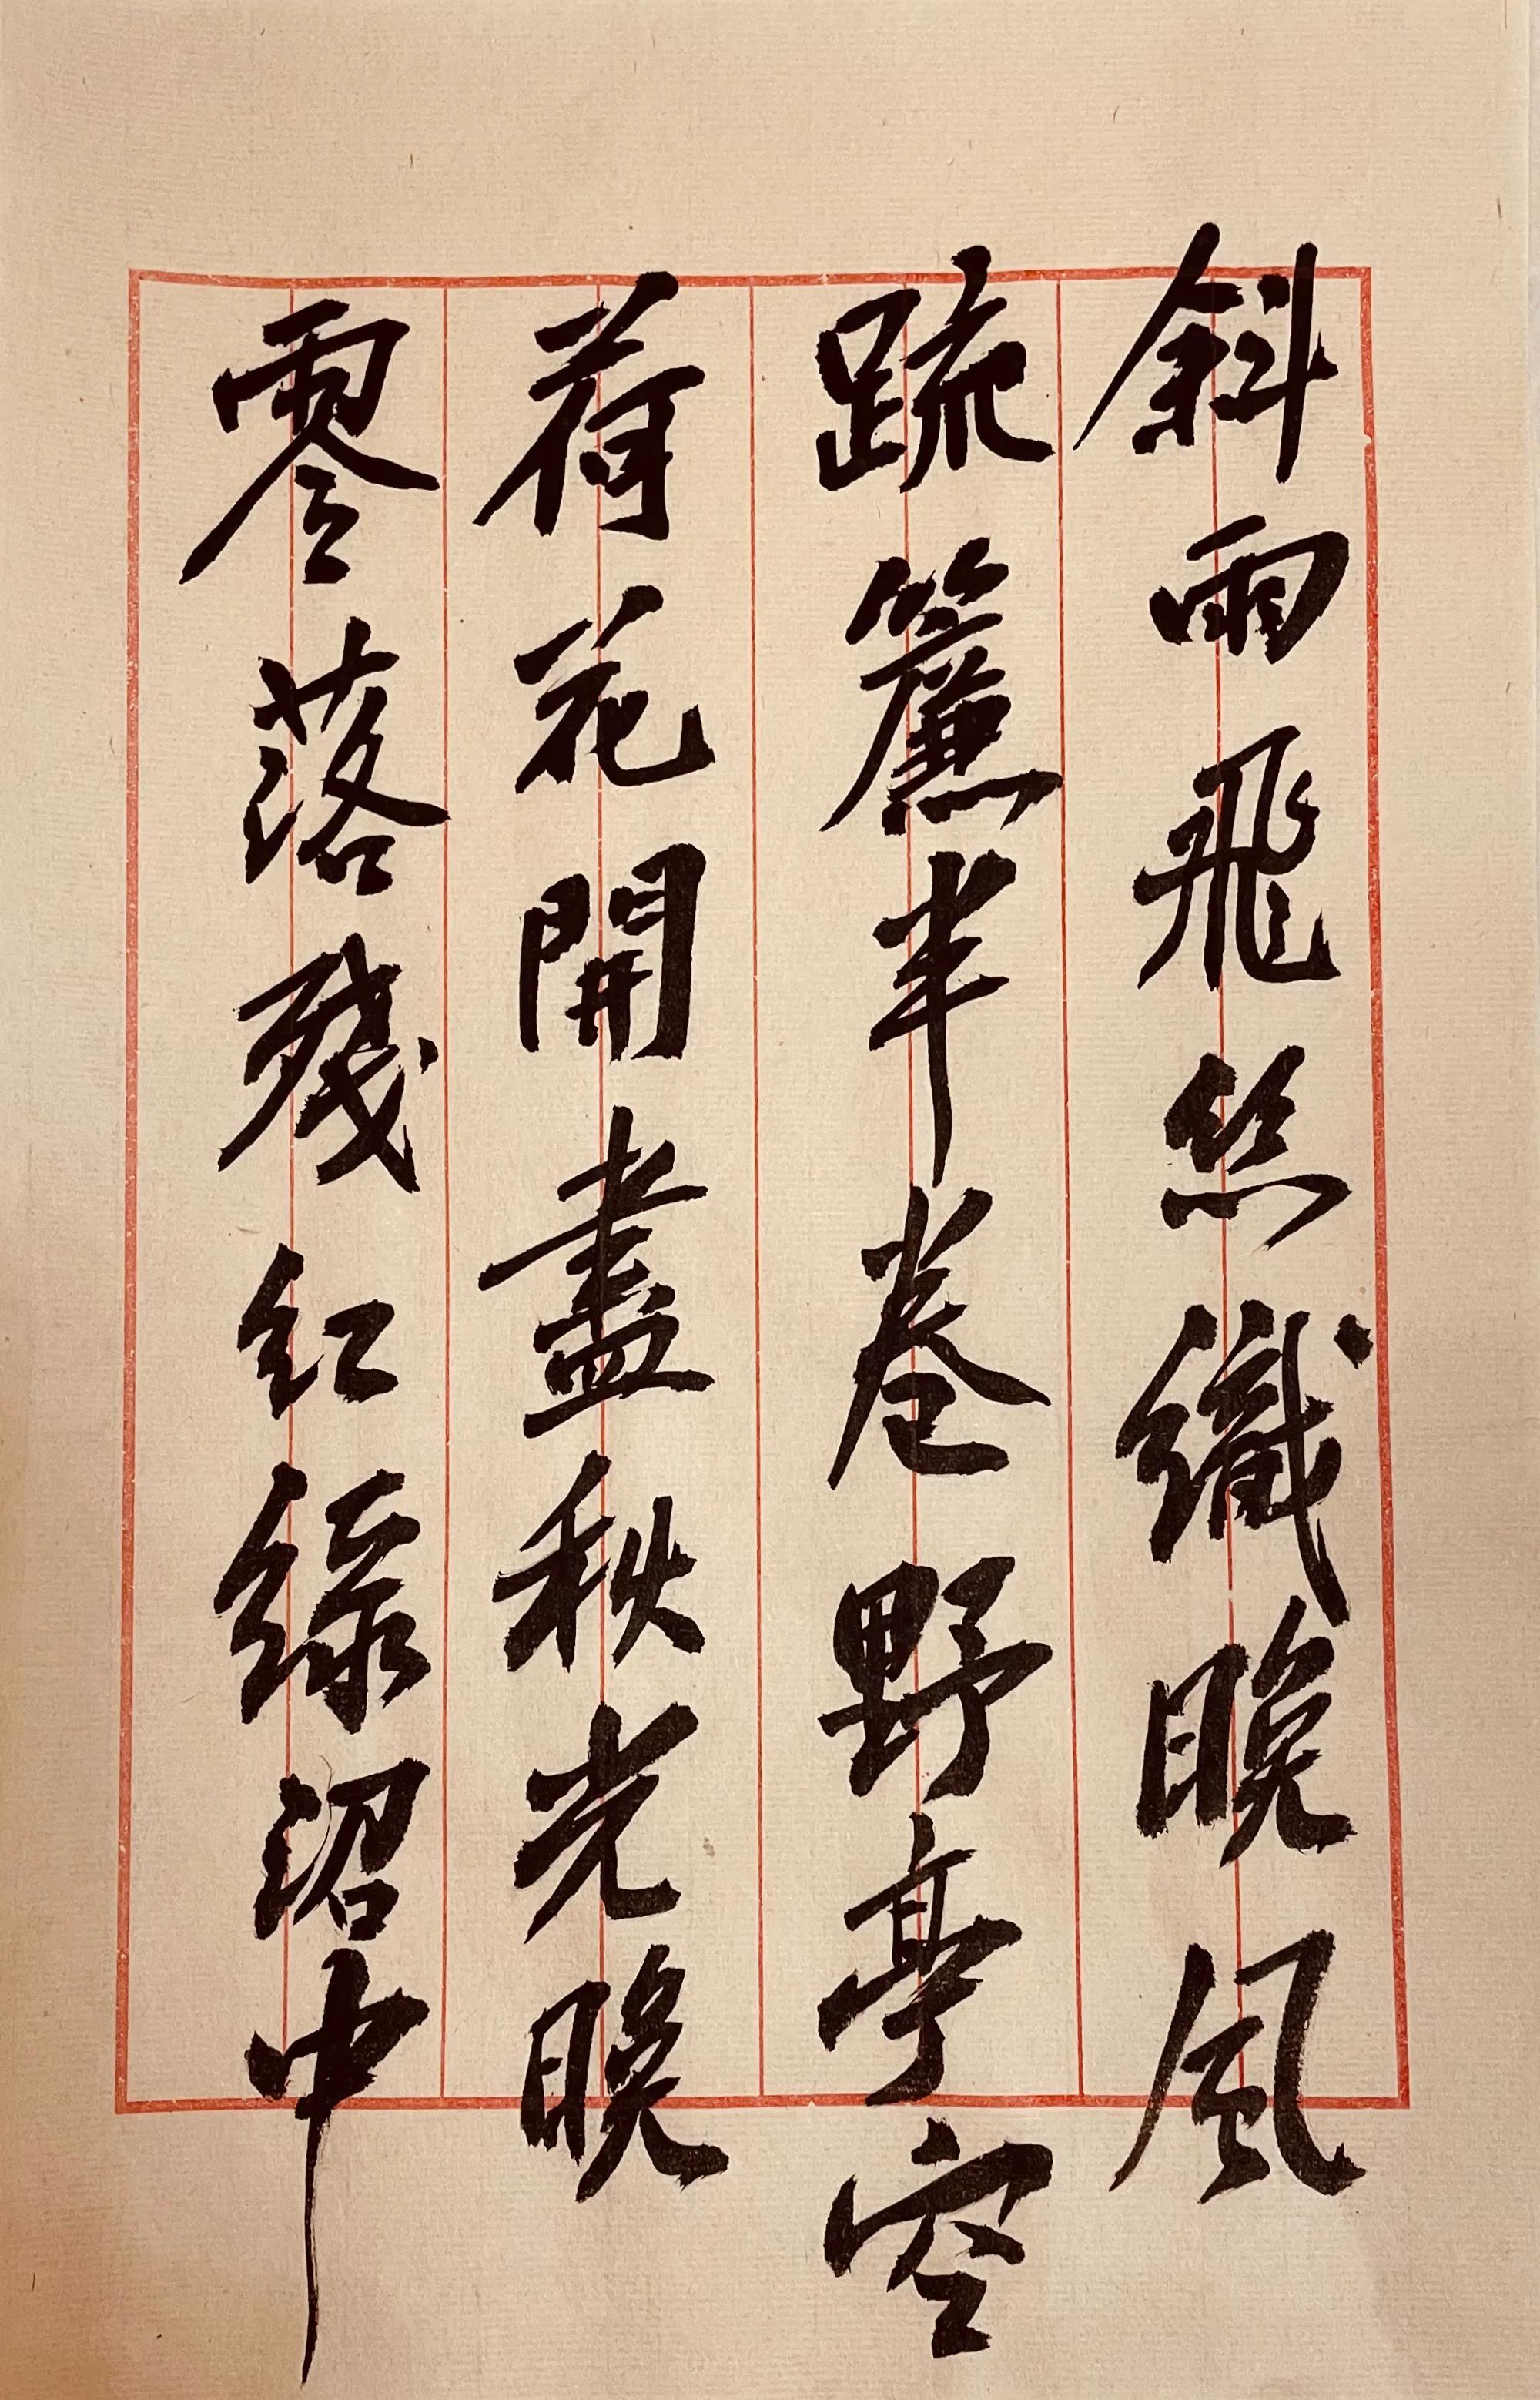 斜雨飛絲織晚風
疏簾半卷野亭空
荷花開盡秋光晚
零落殘紅綠沼中